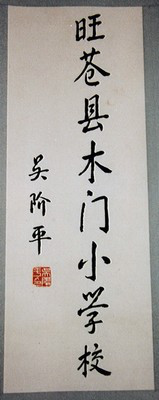 旺苍县木门小学校
吴阶平